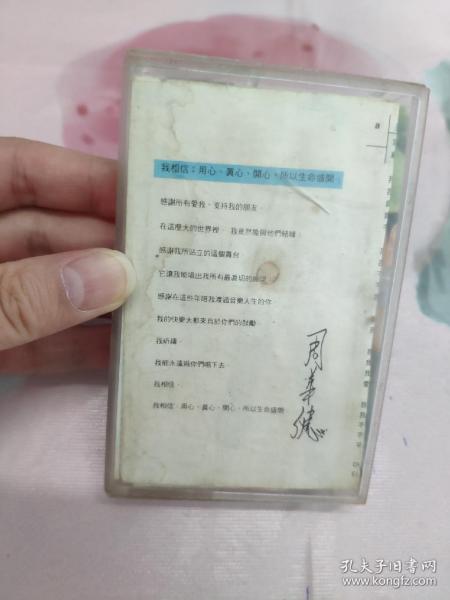 我相信：用心、真心、開心，所以生命盛開。
感謝所有愛我、支持我的朋友，
在這麼大的世界裡，我竟然能與他們結緣；
感謝我所站立的這個舞台
它讓我能唱出我所有最真切的
感謝在這些年陪我渡過音樂人生的你
我的快樂大都來自於你們的鼓勵
我祈禱，
我能永遠與你們唱下去
我相信，
我相信：用心、真心、開心，所以生命盛開
周華健
孔夫子旧书网
www.kongfz.com